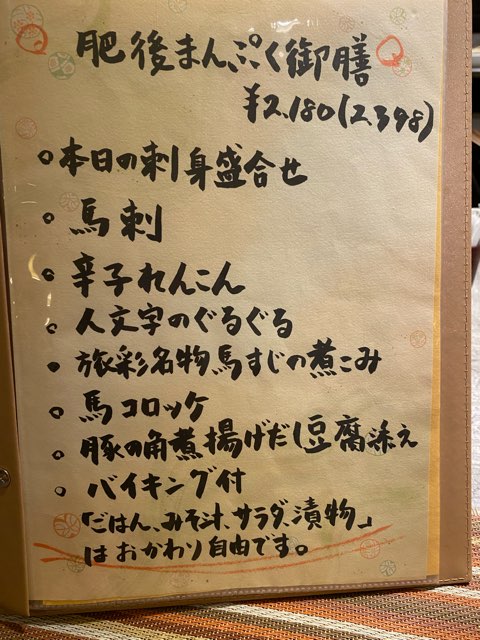 肥後まんぷく御膳
¥2,180(2,398)
○本日の刺身盛合せ
○馬刺
○辛子れんこん
○人文字のぐるぐる
○旅彩名物馬すじの煮こみ
○馬コロッケ
○豚の角煮揚げだし豆腐添え
○バイキング付
「ごはん、みそ汁、サラダ、漬物」
はおかわり自由です。